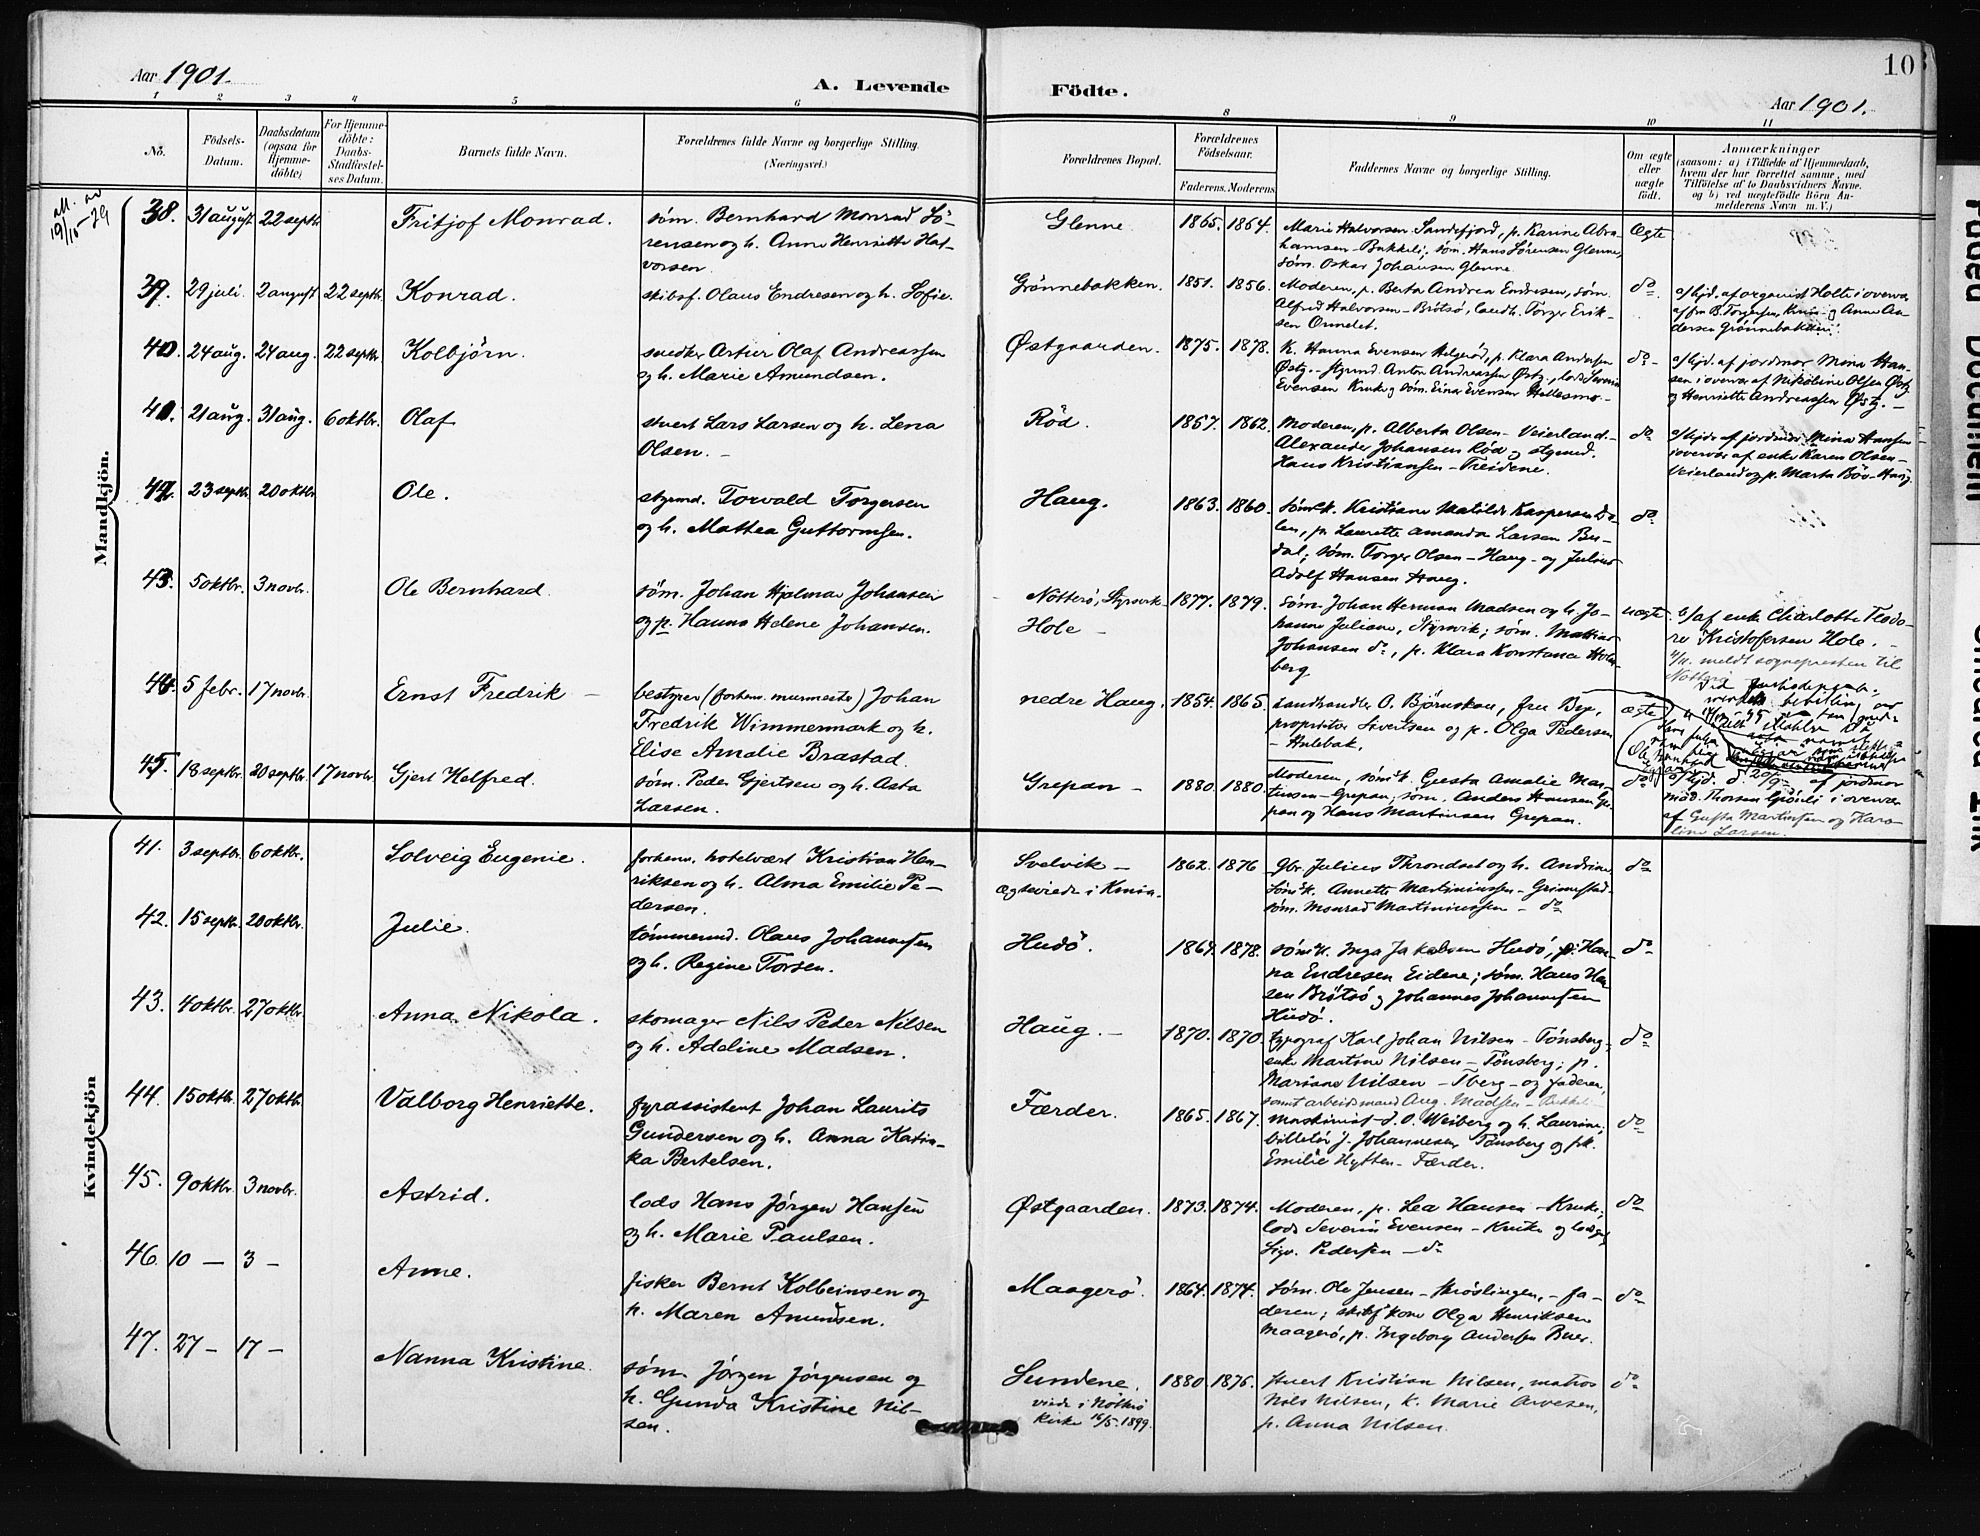 10
Aar 1901.
A. Levende Födte.
Aar 1901.
1 2 3 4 5 6 8 9 10 11
No.
Födsels-Datum.
Daabsdatum (ogsaa for Hjemme-döbte)
For Hjemme-döbte: Daabs-Stadfæstel-ses Datum.
Barnets fulde Navn.
Forældrenes fulde Navne og borgerlige Stilling.
(Næringsvei.)
Forældrenes Bopæl.
Forældrenes Födselsaar.
Faderens. Moderens.
Faddernes Navne og borgerlige Stilling.
Om ægte eller uægte födt.
Anmærkninger
(saasom: a) i Tilfælde af Hjemmedaab,
hvem der har forrettet samme, med
Tilföielse af to Daabsvidners Navne,
og b) ved uægtefödte Börn An-
melderens Navn m. V.)
Mandkjön.
38. 31 august 22 septr. Fritjof Monrad.
søm. Bernhard Monrad Sö-
rensen og h. Anne Henriette Hal-
vorsen
Glenne 1865. 1864.
Marie Halvorsen Sandefjord, p. Karine Abra-
hamsen-Bakkeli, søm. Hans Sørensen Glenne,
søm. Oskar Johansen Glenne.
Ægte
39. 29 juli. 2 august 22 septr. Konrad.
skibsf. Olaus Endresen og h. Sofie.
Grönnebakken. 1851. 1856.
Moderen, p. Berta Andrea Endresen, søm.
Alfred Halvorsen-Brötsö, landh. Torger Erik-
sen Ormelet.
do.
a/ hjd. af organist Holte i overvær
af fru B. Torgersen, Kruke og Anne An-
dersen Grönnebakken.
40. 24 aug. 24 aug. 22 septr. Kolbjörn.
snedker Artur Olaf Andreassen
og h. Marie Amundsen.
Østgaarden. 1875. 1878.
K. Hanna Evensen Helgerød, p. Klara Andersen
Østg. - styrmd. Anton Andreassen Østg., lods Severin
Evensen Kruke og søm. Einar Evensen Hellesmo-
do -
a/ hjd. af jordmor Mina Han-
sen i overvær af Nikoline Olsen Østg.
og Henriette Andreassen Østg. -
41. 21 aug. 31 aug. 6 oktbr. Olaf
stuert Lars Larsen og h. Lena
Olsen. -
Röd. 1857. 1862.
Moderen, p. Alberta Olsen-Veierland-
Alexander Johansen Rød og styrmd.
Hans Kristiansen-Treidene.
do
a/ hjd. af jordmor Mina Hansen
i overvær af enke Karen Olsen-
Veierland og p. Marta Böv-Haug.
42. 23 septr. 20 oktbr Ole.
styrmd. Torvald Torgersen
og h. Mathea Guttormsen.
Haug. 1863. 1860.
sømk. Kristiane Matilde Kaspersen Da-
len, p. Laurette Amanda Larsen Bu-
dal; søm. Torger Olsen-Haug-og Julius
Adolf Hansen Haug.
do
43. 5 oktbr. 3 novbr. Ole Bernhard.
søm. Johan Hjalmar Johansen
og p. Hanna Helene Johansen.
Nötterö, Styrsvik-
Hole -
1877. 1879.
Søm. Johan Herman Madsen og h. Jo-
hanne Juliane, Styrsvik; søm. Mathias
Johansen do, p. Klara Konstance Holm-
berg
uægte
b/ af enke Charlotte Teodo-
re Kristofersen Hole.
4/11. meldt sognepresten til
Nötterö.
44. 5 febr. 17 novbr. Ernst Fredrik -
bestyrer (forhenv. murmester) Johan
Fredrik Wimmermark og h.
Elise Amalie Brastad.
nedre Haug. 1854. 1865.
landhandler O. Björnskau, fru Bye,
proprietær Sivertsen og p. Olga Pedersen
- Hulebak.
ægte
45. 18 septbr. 20 septbr 17 novbr. Gjert Halfred.
søm. Peder Gjertsen og h. Asta
Larsen.
Grepan - 1880. 1880.
Moderen, sømk. Gusta Amalie Mar-
tinsen-Grepan, søm. Anders Hansen Gre-
pan og Hans Martinsen Grepan.
do
a/ hjd. d. 20/9 af jordmor
mad. Thorsen Gjönli i overvær
af Gusta Martinsen og Karo-
line Larsen.
Kvindekjön
41. 3 septbr. 6 oktbr. Solveig Eugenie.
forhenv. hotelvært Kristian Hen-
riksen og h. Alma Emilie Pe-
dersen.
Svelvik -
ægteviede i Kria.
1862. 1876
Gbr. Julius Throndset og h. Andrine
sømk. Annette Martiniussen-Grimestad-
søm. Monrad Martiniussen - do
do
42. 15 septr. 20 oktbr. Julie.
tömmermd. Olaus Johannesen
og h. Regine Torsen.
Hudö. 1864. 1878.
sømk. Inga Jakobsen Hudö, p. Han-
na Endresen Eidene; søm. Hans Han-
sen Brötsö og Johannes Johannesen
Hudö.
do
43. 4 oktbr. 27 oktbr. Anna Nikola.
skomager Nils Peder Nilsen
og h. Adeline Madsen.
Haug. - 1870. 1870.
typograf Karl Johan Nilsen - Tønsberg -
enke Martine Nilsen-Tönsberg; p.
Mariane Nilsen - Tberg - og faderen,
samt arbeidsmand Aug. Madsen - Bakkeli -
do
44. 15 oktbr. 27 oktbr. Valborg Henriette.
fyrassistent Johan Laurits
Gundersen og h. Anna Katin-
ka Bertelsen.
Færder. 1865. 1867.
maskinist J. O. Weiberg og h. Laurine,
billetör J. Johannesen Tönsberg og frk.
Emilie Hytten-Færder.
do
45. 9 oktbr. 3 novbr. Astrid.
lods Hans Jørgen Hansen
og h. Marie Paulsen.
Østgaarden. 1873. 1874.
Moderen, p. Lea Hansen-Kruke,
lods Severin Evensen-Kruke og
Sigv. Pedersen - do
do
46. 10 - 3 - Anne.
fisker Bernt Kolbeinsen og
h. Maren Amundsen.
Maagerö. 1864. 1874.
Søm. Ole Jensen - Kröslingen, - fa-
deren; skibsf.kone Olga Henriksen
Maagerö, p. Ingeborg Andersen Buer.
do
47. 27 - 17 - Nanna Kristine.
søm. Jörgen Jörgensen og
h. Gunda Kristine Nil-
sen.
Sundene.
viede i Nötterö
kirke 15/5. 1899.
1880 1876.
Stuert Kristian Nilsen, matros
Nils Nilsen, k. Marie Arvesen,
p. Anna Nilsen.
do